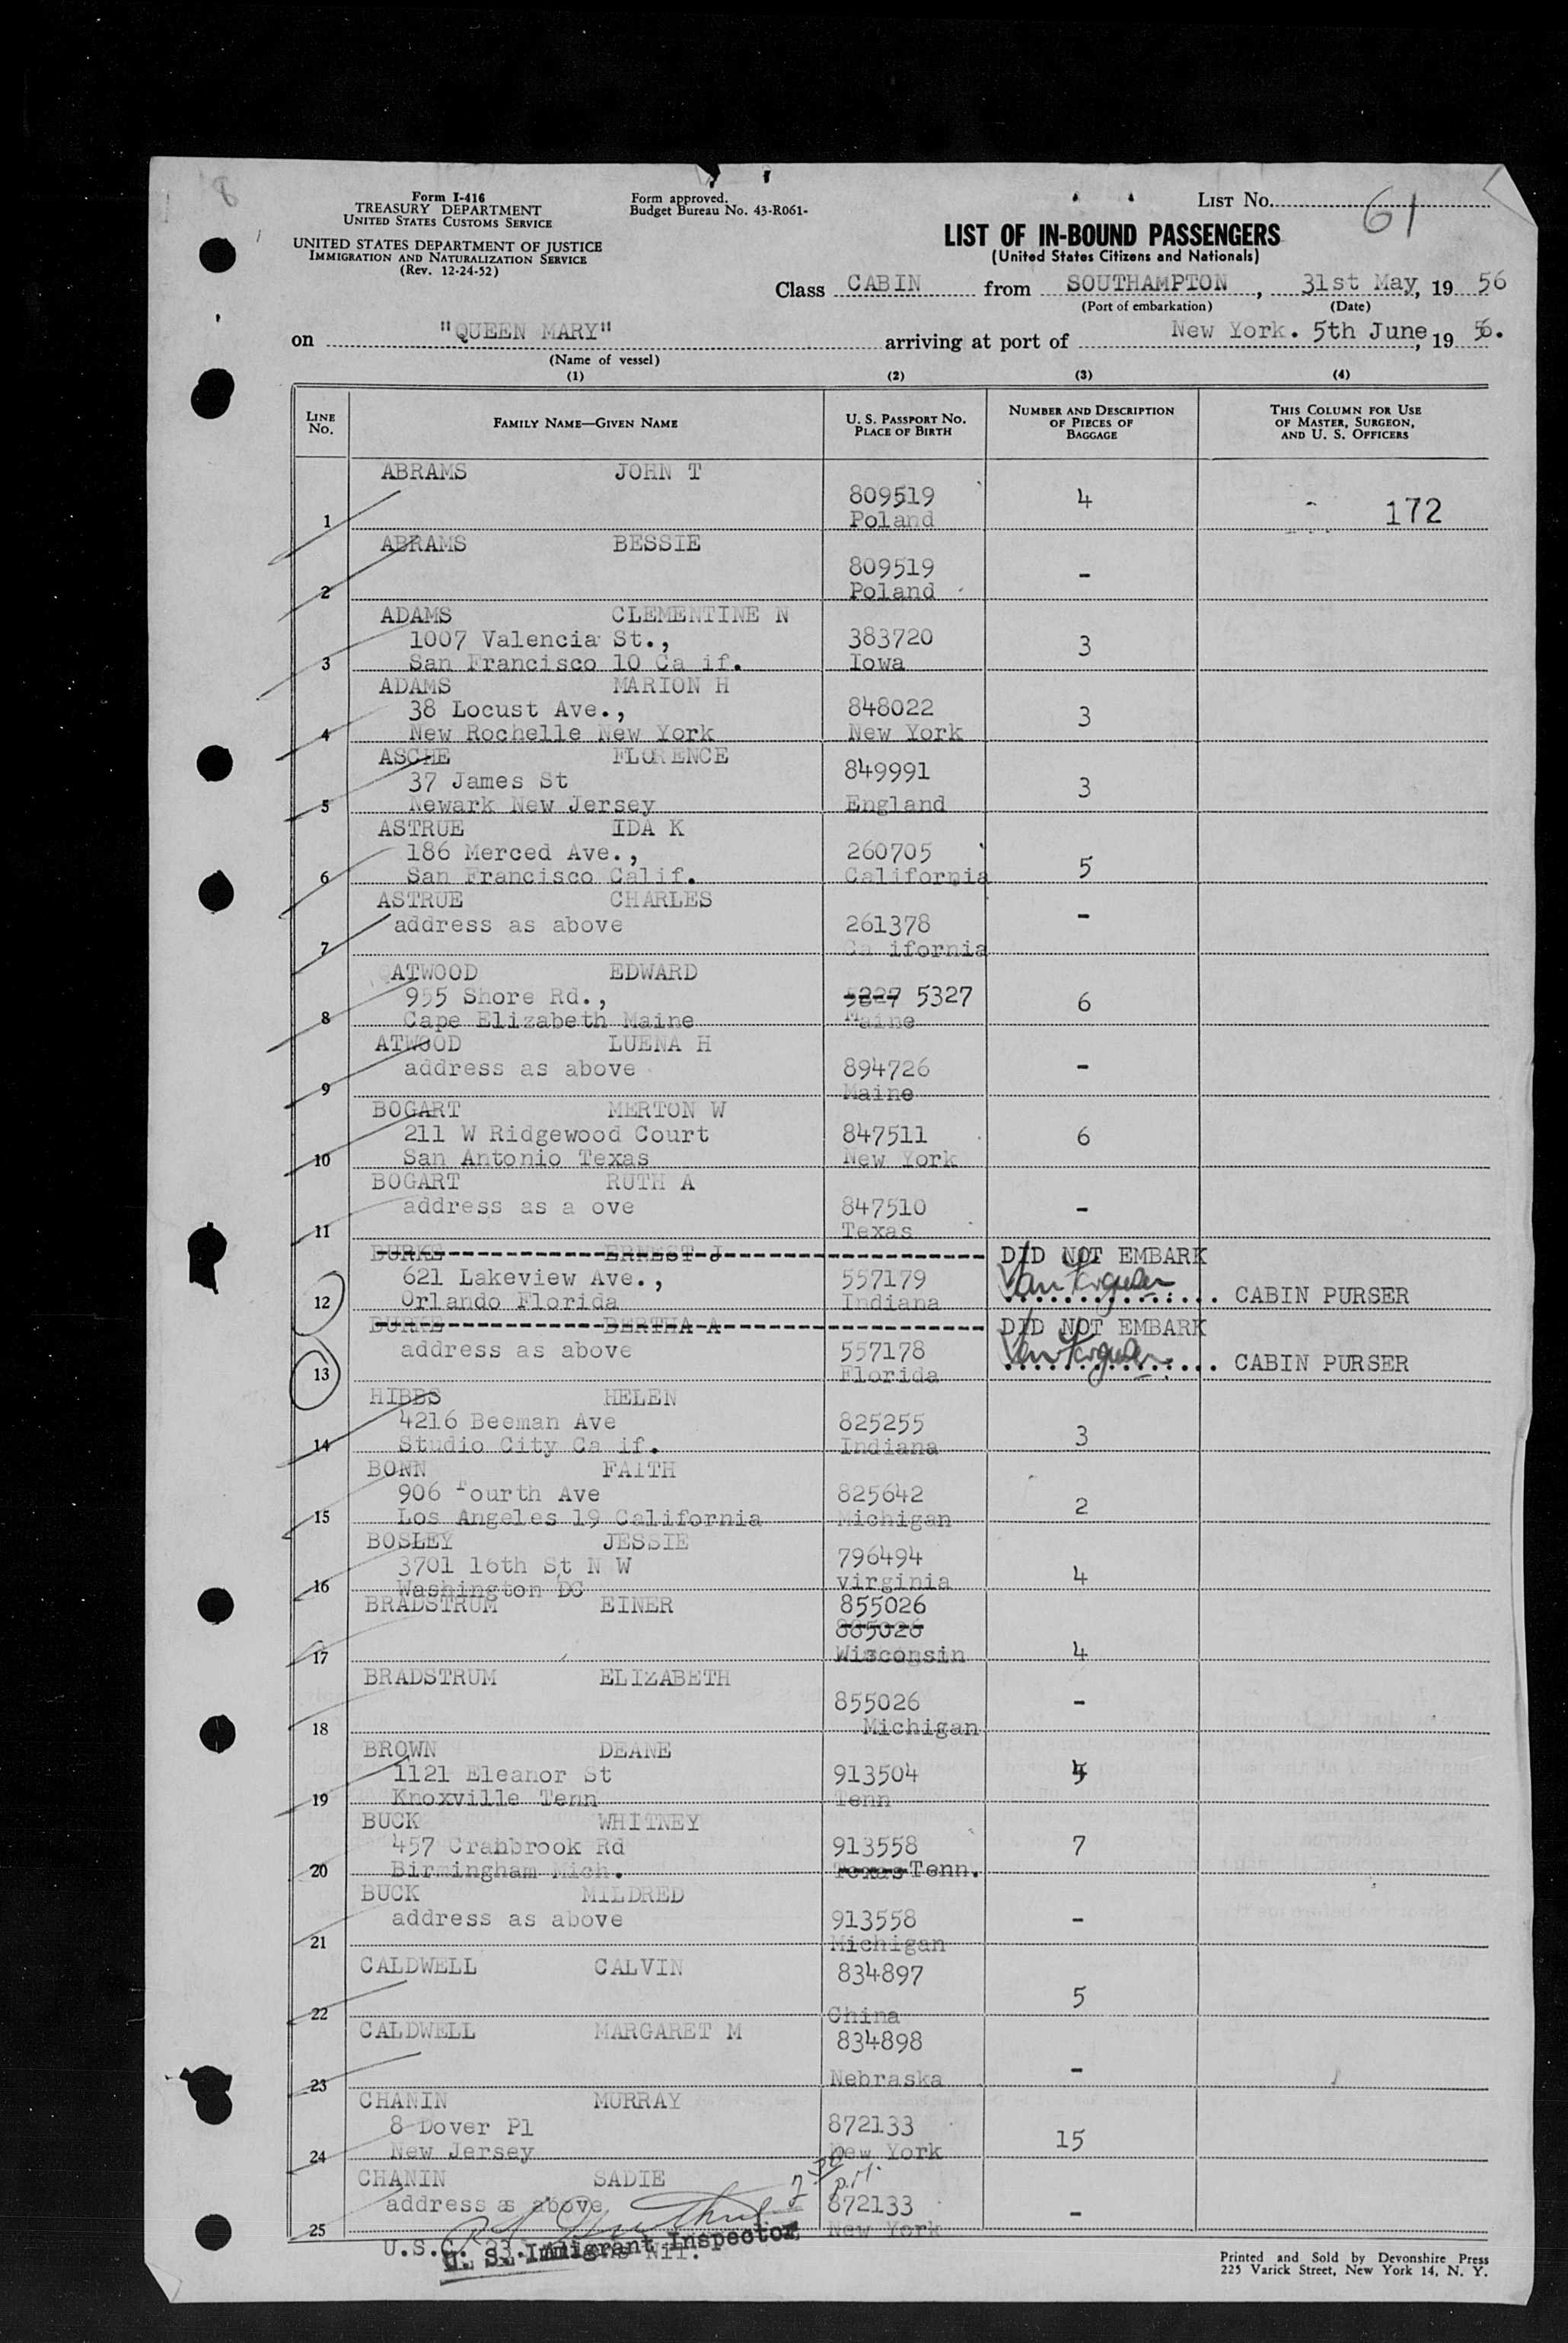 8
Form I-416
TREASURY DEPARTMENT
UNITED STATES CUSTOMS SERVICE
UNITED STATES DEPARTMENT OF JUSTICE
IMMIGRATION AND NATURALIZATION SERVICE
(Rev. 12-24-52)
Form approved.
Budget Bureau No. 43-R061-
LIST NO. 61
LIST OF IN-BOUND PASSENGERS
(United States Citizens and Nationals)
Class CABIN from SOUTHAMPTON, 31st May, 19 56
(Port of embarkation) (Date)
on "QUEEN MARY" arriving at port of New York. 5th June, 19 56.
(Name of vessel)
(1) (2) (3) (4)
LINE NO. FAMILY NAME—GIVEN NAME U. S. PASSPORT NO. PLACE OF BIRTH NUMBER AND DESCRIPTION OF PIECES OF BAGGAGE THIS COLUMN FOR USE OF MASTER, SURGEON, AND U. S. OFFICERS
ABRAMS JOHN T
809519 4
1 Poland 172
ABRAMS BESSIE
809519 -
2 Poland
ADAMS CLEMENTINE N
1007 Valencia St., 383720 3
3 San Francisco 10 Ca if. Iowa
ADAMS MARION H
38 Locust Ave., 848022 3
4 New Rochelle New York New York
ASCHE FLORENCE
37 James St 849991 3
5 Newark New Jersey England
ASTRUE IDA K
186 Merced Ave., 260705 5
6 San Francisco Calif. California
ASTRUE CHARLES
address as above 261378 -
7 Ca ifornia
ATWOOD EDWARD
955 Shore Rd., 5827 5327 6
8 Cape Elizabeth Maine Maine
ATWOOD LUENA H
address as above 894726 -
9 Maine
BOGART MERTON W
211 W Ridgewood Court 847511 6
10 San Antonio Texas New York
BOGART RUTH A
address as a ove 847510 -
11 Texas
BURKE ERNEST J DID NOT EMBARK
621 Lakeview Ave., 557179
12 Orlando Florida Indiana CABIN PURSER
BURKE BERTHA A DID NOT EMBARK
address as above 557178
13 Florida CABIN PURSER
HIBBS HELEN
4216 Beeman Ave 825255 3
14 Studio City Ca if. Indiana
BONN FAITH
906 fourth Ave 825642 2
15 Los Angeles 19 California Michigan
BOSLEY JESSIE
3701 16th St N W 796494 4
16 Washington DC virginia
BRADSTRUM EINER 855026
865026
17 Wisconsin 4
BRADSTRUM ELIZABETH
855026 -
18 Michigan
BROWN DEANE
1121 Eleanor St 913504 5
19 Knoxville Tenn Tenn
BUCK WHITNEY
457 Cranbrook Rd 913558 7
20 Birmingham Mich. Texas Tenn.
BUCK MILDRED
address as above 913558 -
21 Michigan
CALDWELL CALVIN 834897
5
22 China
CALDWELL MARGARET M 834898
-
23 Nebraska
CHANIN MURRAY
8 Dover Pl 872133 15
24 New Jersey New York
CHANIN SADIE
address as above 872133 -
25 New York
U.S.C.
U. S. Immigrant Inspector
Printed and Sold by Devonshire Press
225 Varick Street, New York 14, N. Y.